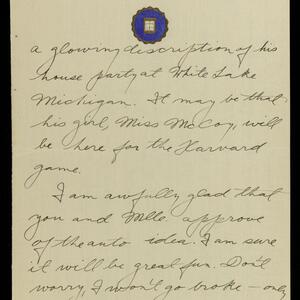 a glowing discription of his
house party at White Lake
Michigan. It may be that
his girl, Miss McCoy, will
be here for the Harvard
game.
I am awfully glad that
you and Mlle. approve
of the auto idea. I am sure
it will be great fun. Don't
worry, I won't go broke - only